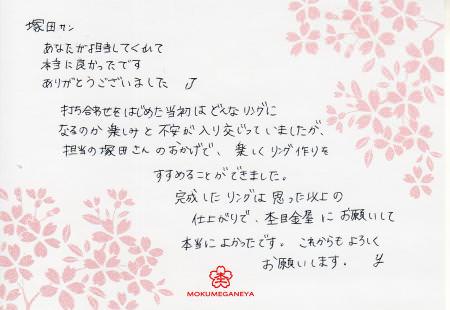 塚田サン
あなたが担当してくれて
本当に良かったです
ありがとうございました J
打ち合わせをはじめた当初はどんなリングに
なるのか楽しみと不安が入り交じっていましたが、
担当の塚田さんのおかげで、楽しくリング作りを
すすめることができました。
完成したリングは思った以上の
仕上がりで、杢目金屋にお願いして
本当によかったです。これからもよろしく
お願いします。 y
MOKUMEGANEYA